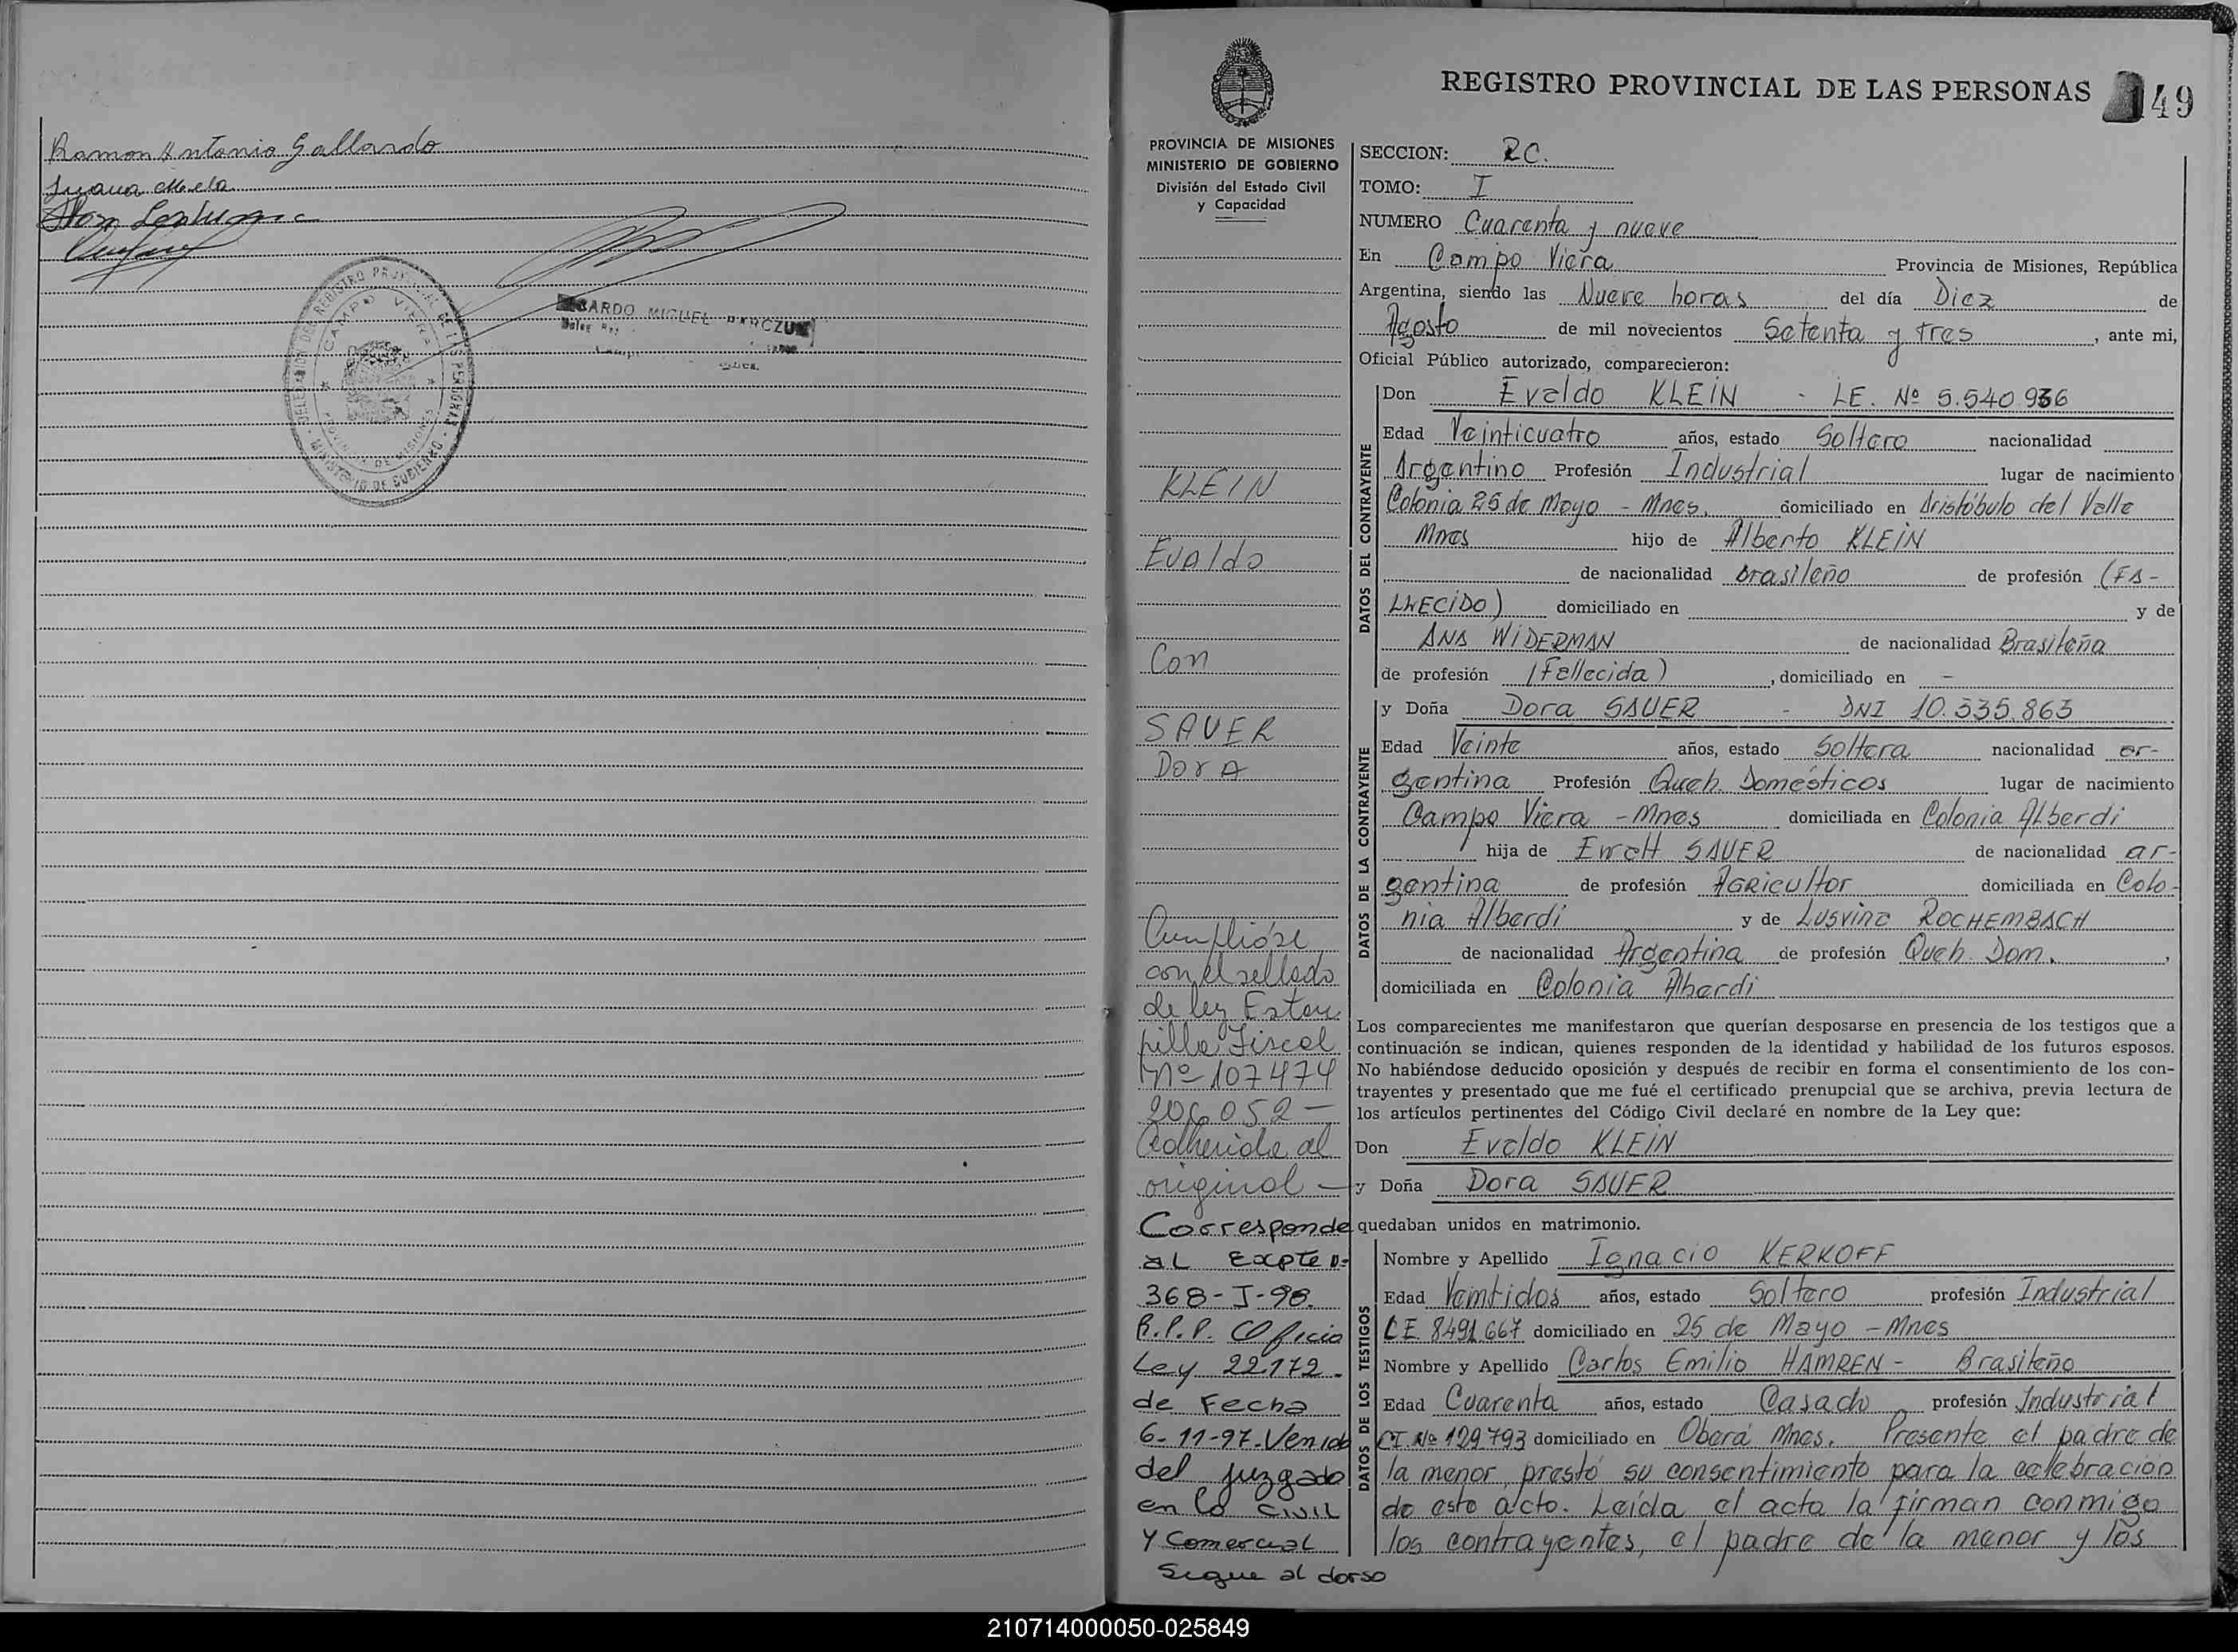 Ramon Antonio Gallardo
Juana
DELEGACION DEL REGISTRO PROVINCIAL DE LAS PERSONAS
CAMPO VIERA
PROVINCIA DE MISIONES
MINISTERIO DE GOBIERNO
MIGUEL
REGISTRO PROVINCIAL DE LAS PERSONAS
149
PROVINCIA DE MISIONES
MINISTERIO DE GOBIERNO
División del Estado Civil
y Capacidad
KLEIN
Evaldo
Con
SAUER
Dora
Cumplióse
con el sellado
de ley Estam
pilla Fiscal
Nº 107474
206052 —
Adherida al
original —
Corresponde
al Expte nº
368-I-98.
R.P.P. Oficio
Ley 22.172.
de Fecha
6-11-97. Venido
del Juzgado
en lo Civil
Y Comercial
Sigue al dorso
SECCION: RC.
TOMO: I
NUMERO Cuarenta y nueve
En Campo Viera Provincia de Misiones, República
Argentina, siendo las Nueve horas del día Diez de
Agosto de mil novecientos Setenta y tres, ante mi,
Oficial Público autorizado, comparecieron:
DATOS DEL CONTRAYENTE
Don Evaldo KLEIN - LE. Nº 5.540.936
Edad Veinticuatro años, estado Soltero nacionalidad
Argentino Profesión Industrial lugar de nacimiento
Colonia 25 de Mayo - Mnes. domiciliado en Aristóbulo del Valle
Mnes hijo de Alberto KLEIN
de nacionalidad brasileño de profesión (FA-
LLECIDO) domiciliado en y de
ANA WIDERMAN de nacionalidad Brasileña
de profesión (Fallecida), domiciliado en -
DATOS DE LA CONTRAYENTE
y Doña Dora SAUER - DNI 10.335.863
Edad Veinte años, estado Soltera nacionalidad ar-
gentina Profesión Queh. Domésticos lugar de nacimiento
Campo Viera - Mnes domiciliada en Colonia Alberdi
hija de SAUER de nacionalidad ar-
gentina de profesión Agricultor domiciliada en Colo-
nia Alberdi y de Lusvina ROCHEMBACH
de nacionalidad Argentina de profesión Queh. Dom.,
domiciliada en Colonia Alberdi
Los comparecientes me manifestaron que querían desposarse en presencia de los testigos que a
continuación se indican, quienes responden de la identidad y habilidad de los futuros esposos.
No habiéndose deducido oposición y después de recibir en forma el consentimiento de los con-
trayentes y presentado que me fué el certificado prenupcial que se archiva, previa lectura de
los artículos pertinentes del Código Civil declaré en nombre de la Ley que:
Don Evaldo KLEIN
y Doña Dora SAUER
quedaban unidos en matrimonio.
DATOS DE LOS TESTIGOS
Nombre y Apellido Ignacio KERKOFF
Edad Veintidos años, estado Soltero profesión Industrial
LE 8491.667 domiciliado en 25 de Mayo - Mnes
Nombre y Apellido Carlos Emilio HAMREN - Brasileño
Edad Cuarenta años, estado Casado profesión Industrial
CI. Nº 129.793 domiciliado en Oberá Mnes. Presente el padre de
la menor prestó su consentimiento para la celebración
de este acto. Leída el acta la firman conmigo
los contrayentes, el padre de la menor y los
210714000050-025849